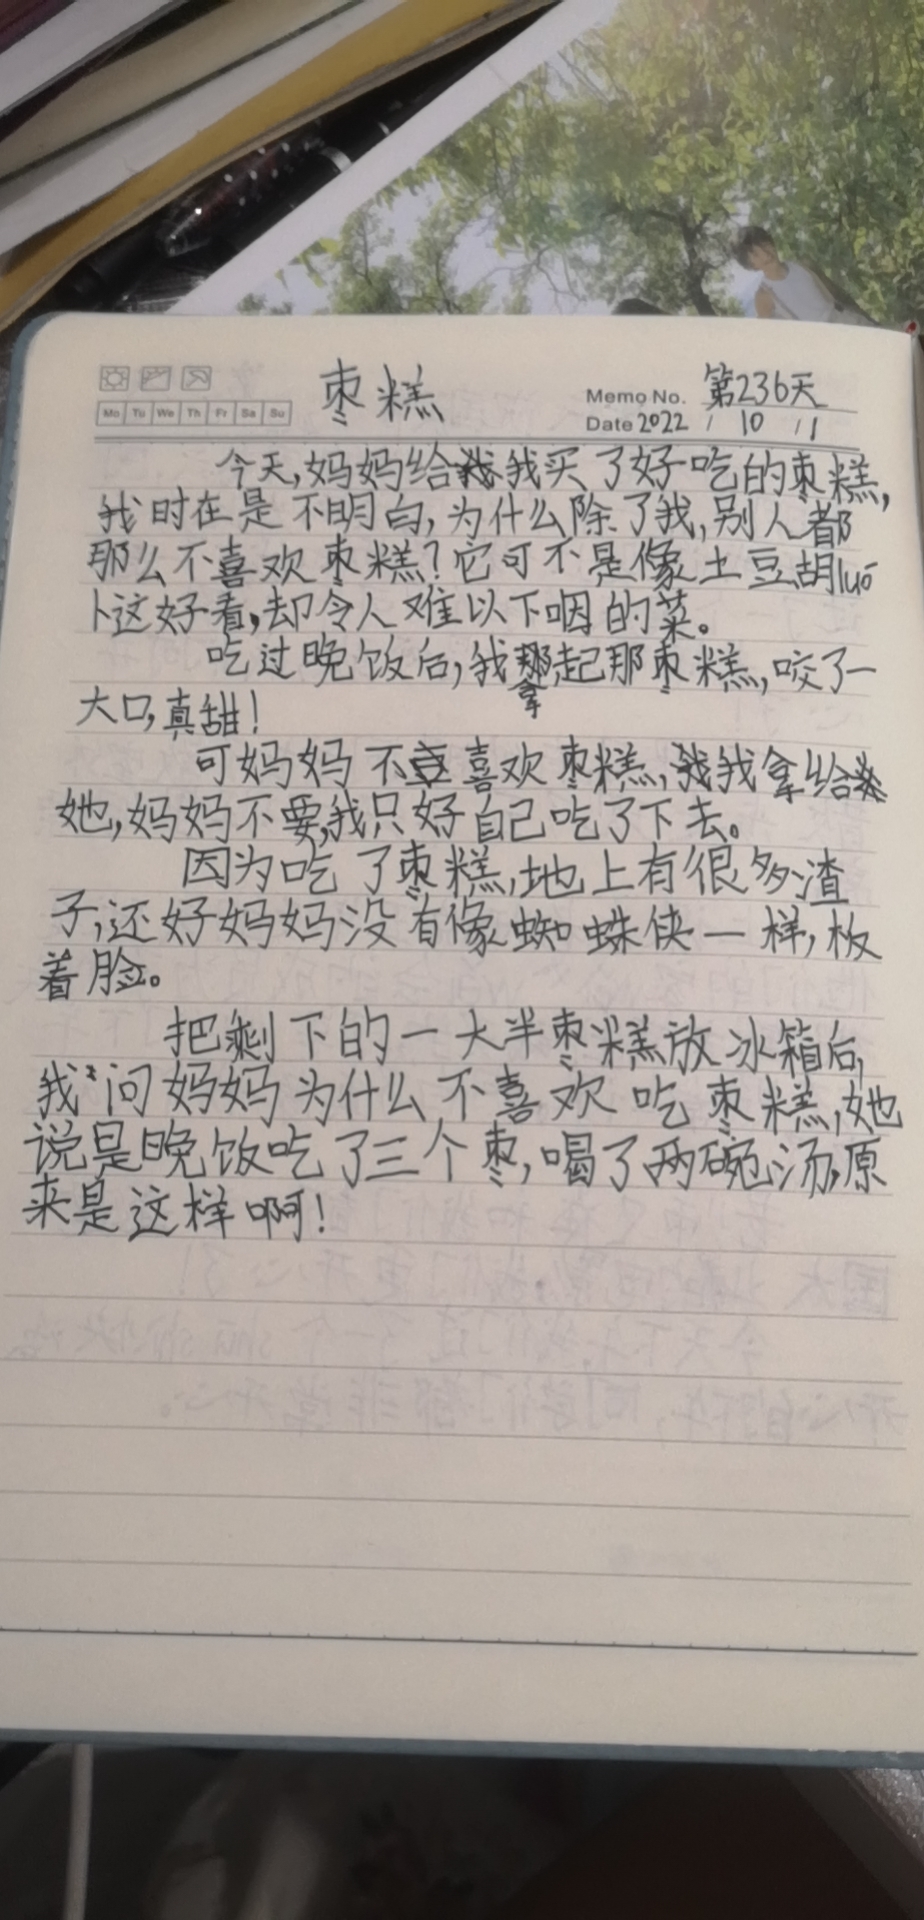 枣糕
Memo No. 第236天
Mo Tu We Th Fr Sa Su
Date 2022 / 10 / 1
今天,妈妈给我买了好吃的枣糕,
我时在是不明白,为什么除了我,别人都
那么不喜欢枣糕?它可不是像土豆胡luó
卜这好看,却令人难以下咽的菜。
吃过晚饭后,我拿起那枣糕,咬了一
大口,真甜!
可妈妈不喜欢枣糕,我拿给
她,妈妈不要,我只好自己吃了下去。
因为吃了枣糕,地上有很多渣
子,还好妈妈没有像蜘蛛侠一样,板
着脸。
把剩下的一大半枣糕放冰箱后,
我问妈妈为什么不喜欢吃枣糕,她
说是晚饭吃了三个枣,喝了两碗汤,原
来是这样啊!